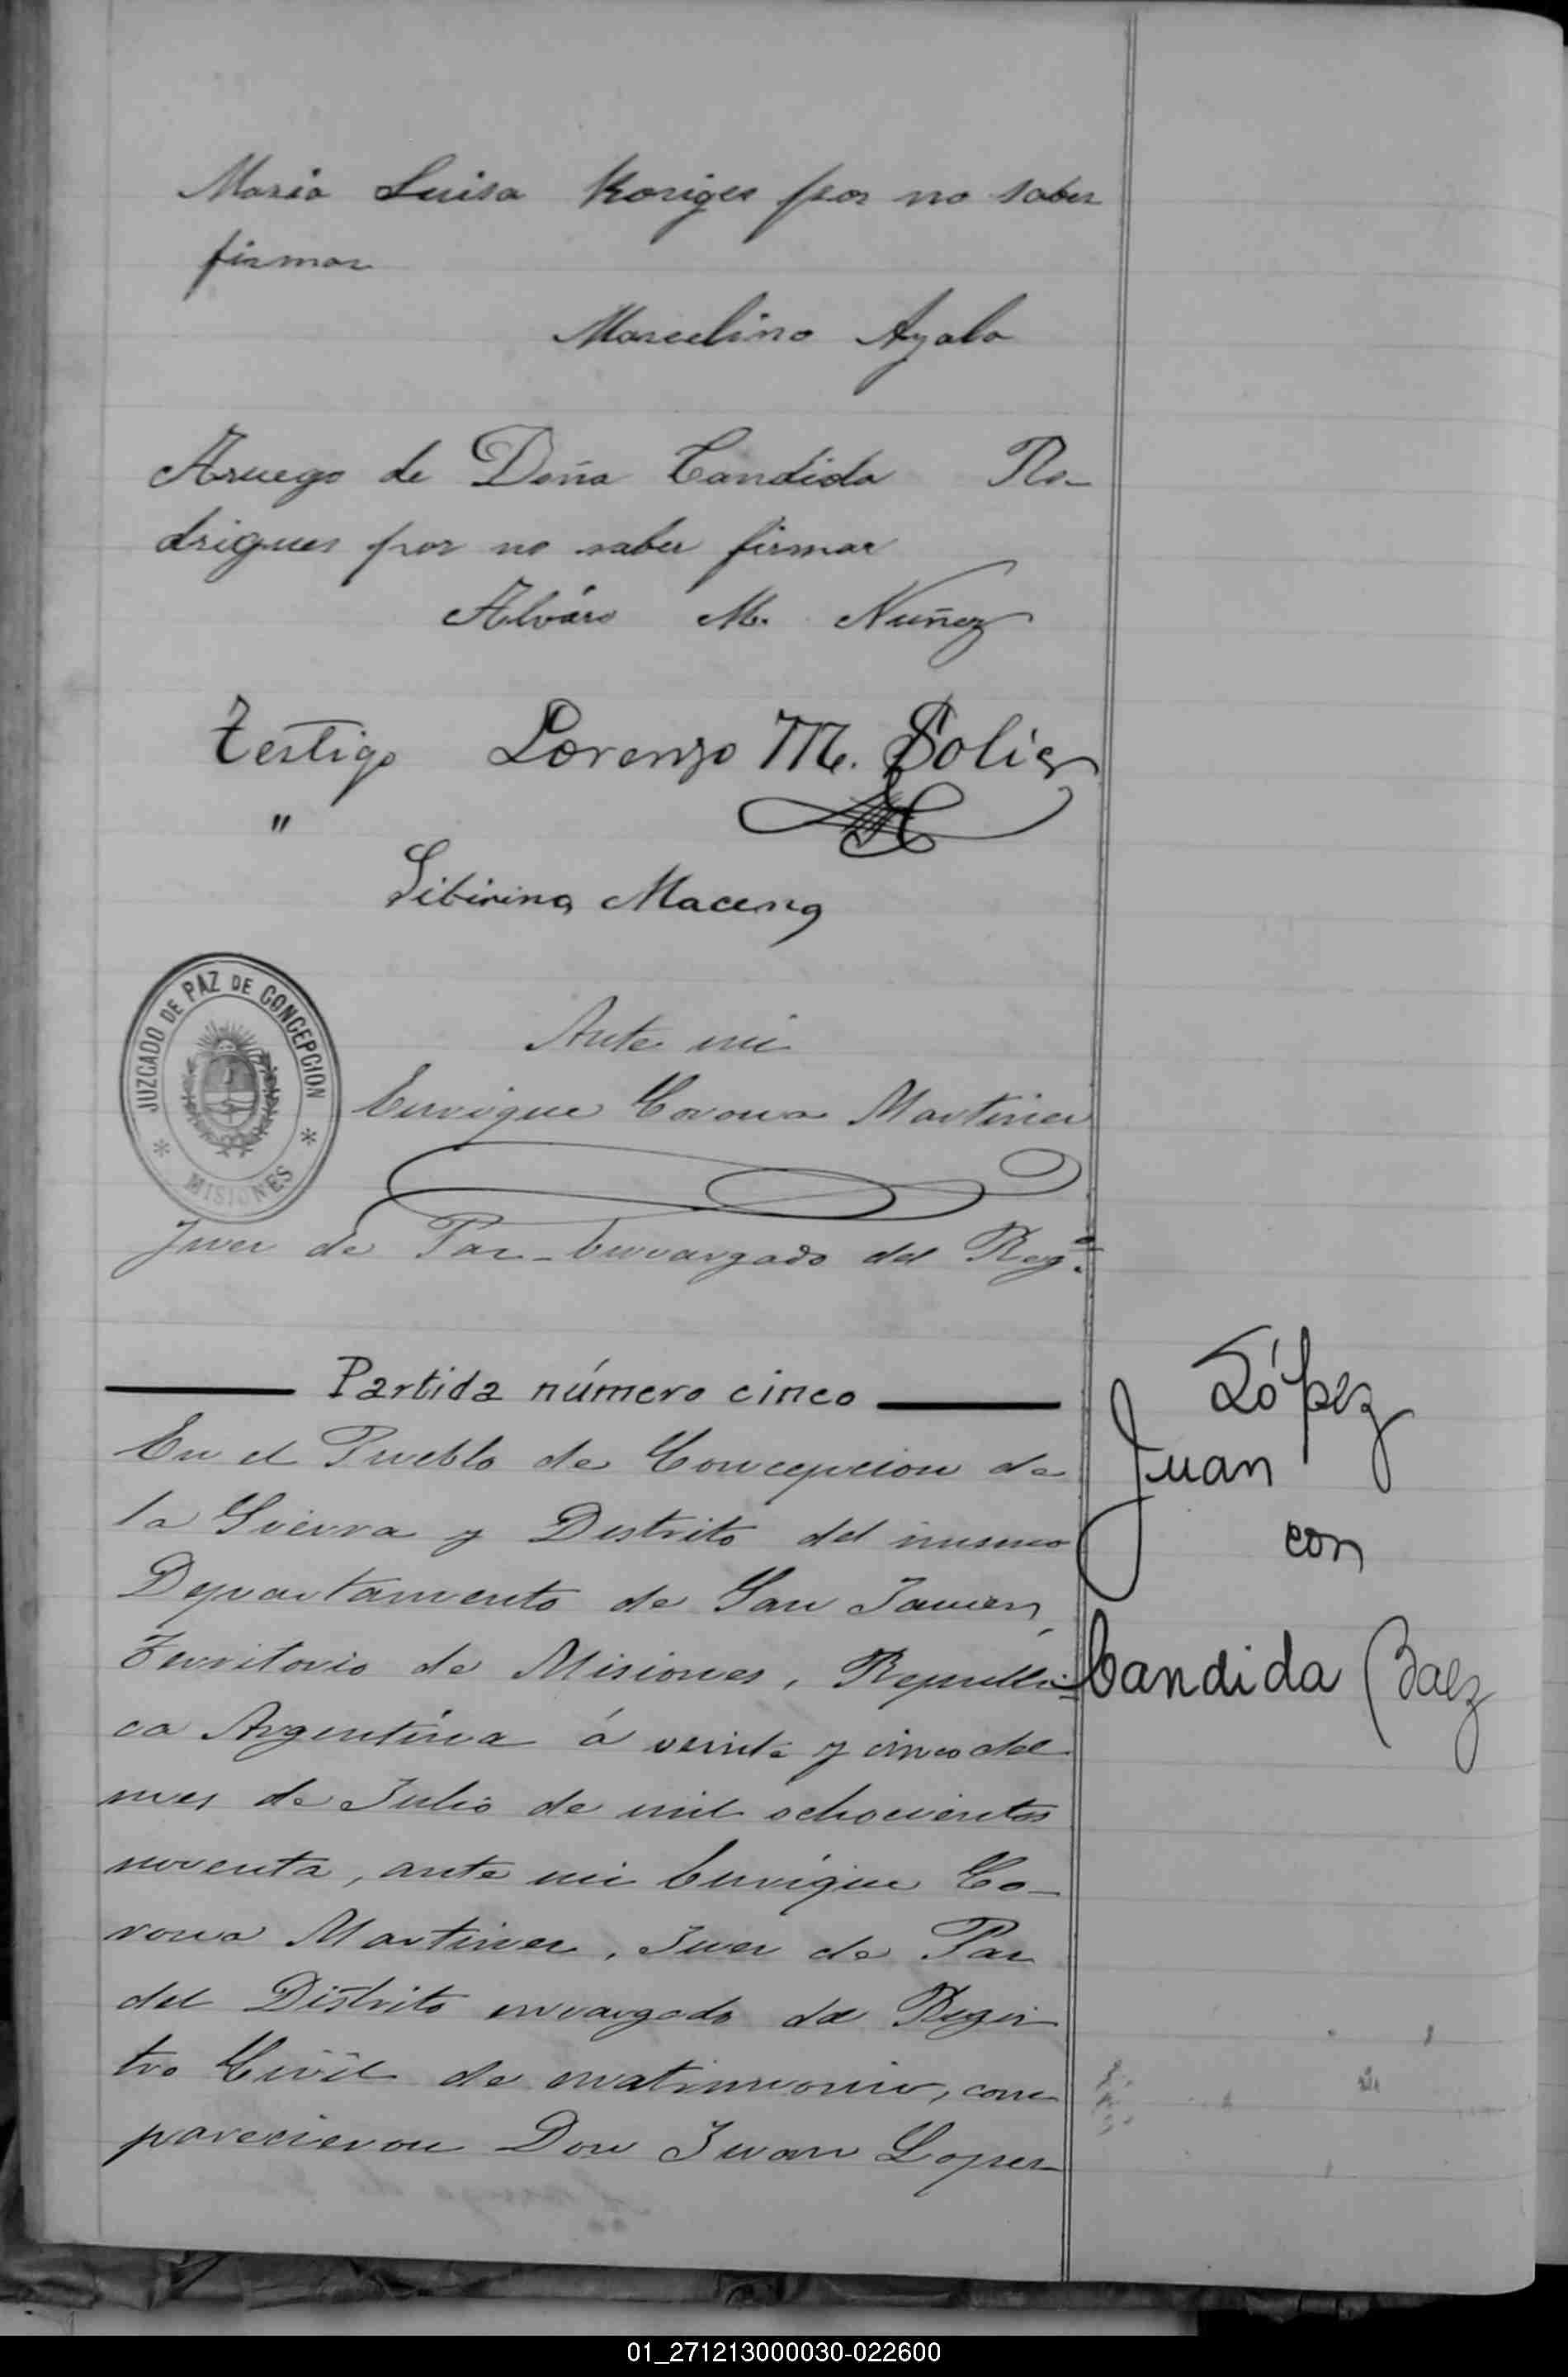 Maria Luisa Koriges por no saber
firmar
Marcelino Ayala
Aruego de Doña Candida Ro-
drigues por no saber firmar
Alváro M. Nuñez
Testigo Lorenzo M. Solis
"
Maceng
JUZGADO DE PAZ DE CONCEPCION
* MISIONES *
Ante mi
Enrique Corona Martinez
Juez de Paz-Encargado del Regº
Partida número cinco
En el Pueblo de Concepcion de
la Sierra y Distrito del mismo
Departamento de San Javier,
Territorio de Misiones, Republi-
ca Argentina á veinte y cinco del
mes de Julio de mil ochocientos
noventa, ante mi Enrique Co-
rona Martinez, Juez de Paz
del Distrito encargado del Regis
tro Civil de matrimonio, com
parecieron Don Juan Lopez
López
Juan
con
Candida Baez
01_271213000030-022600